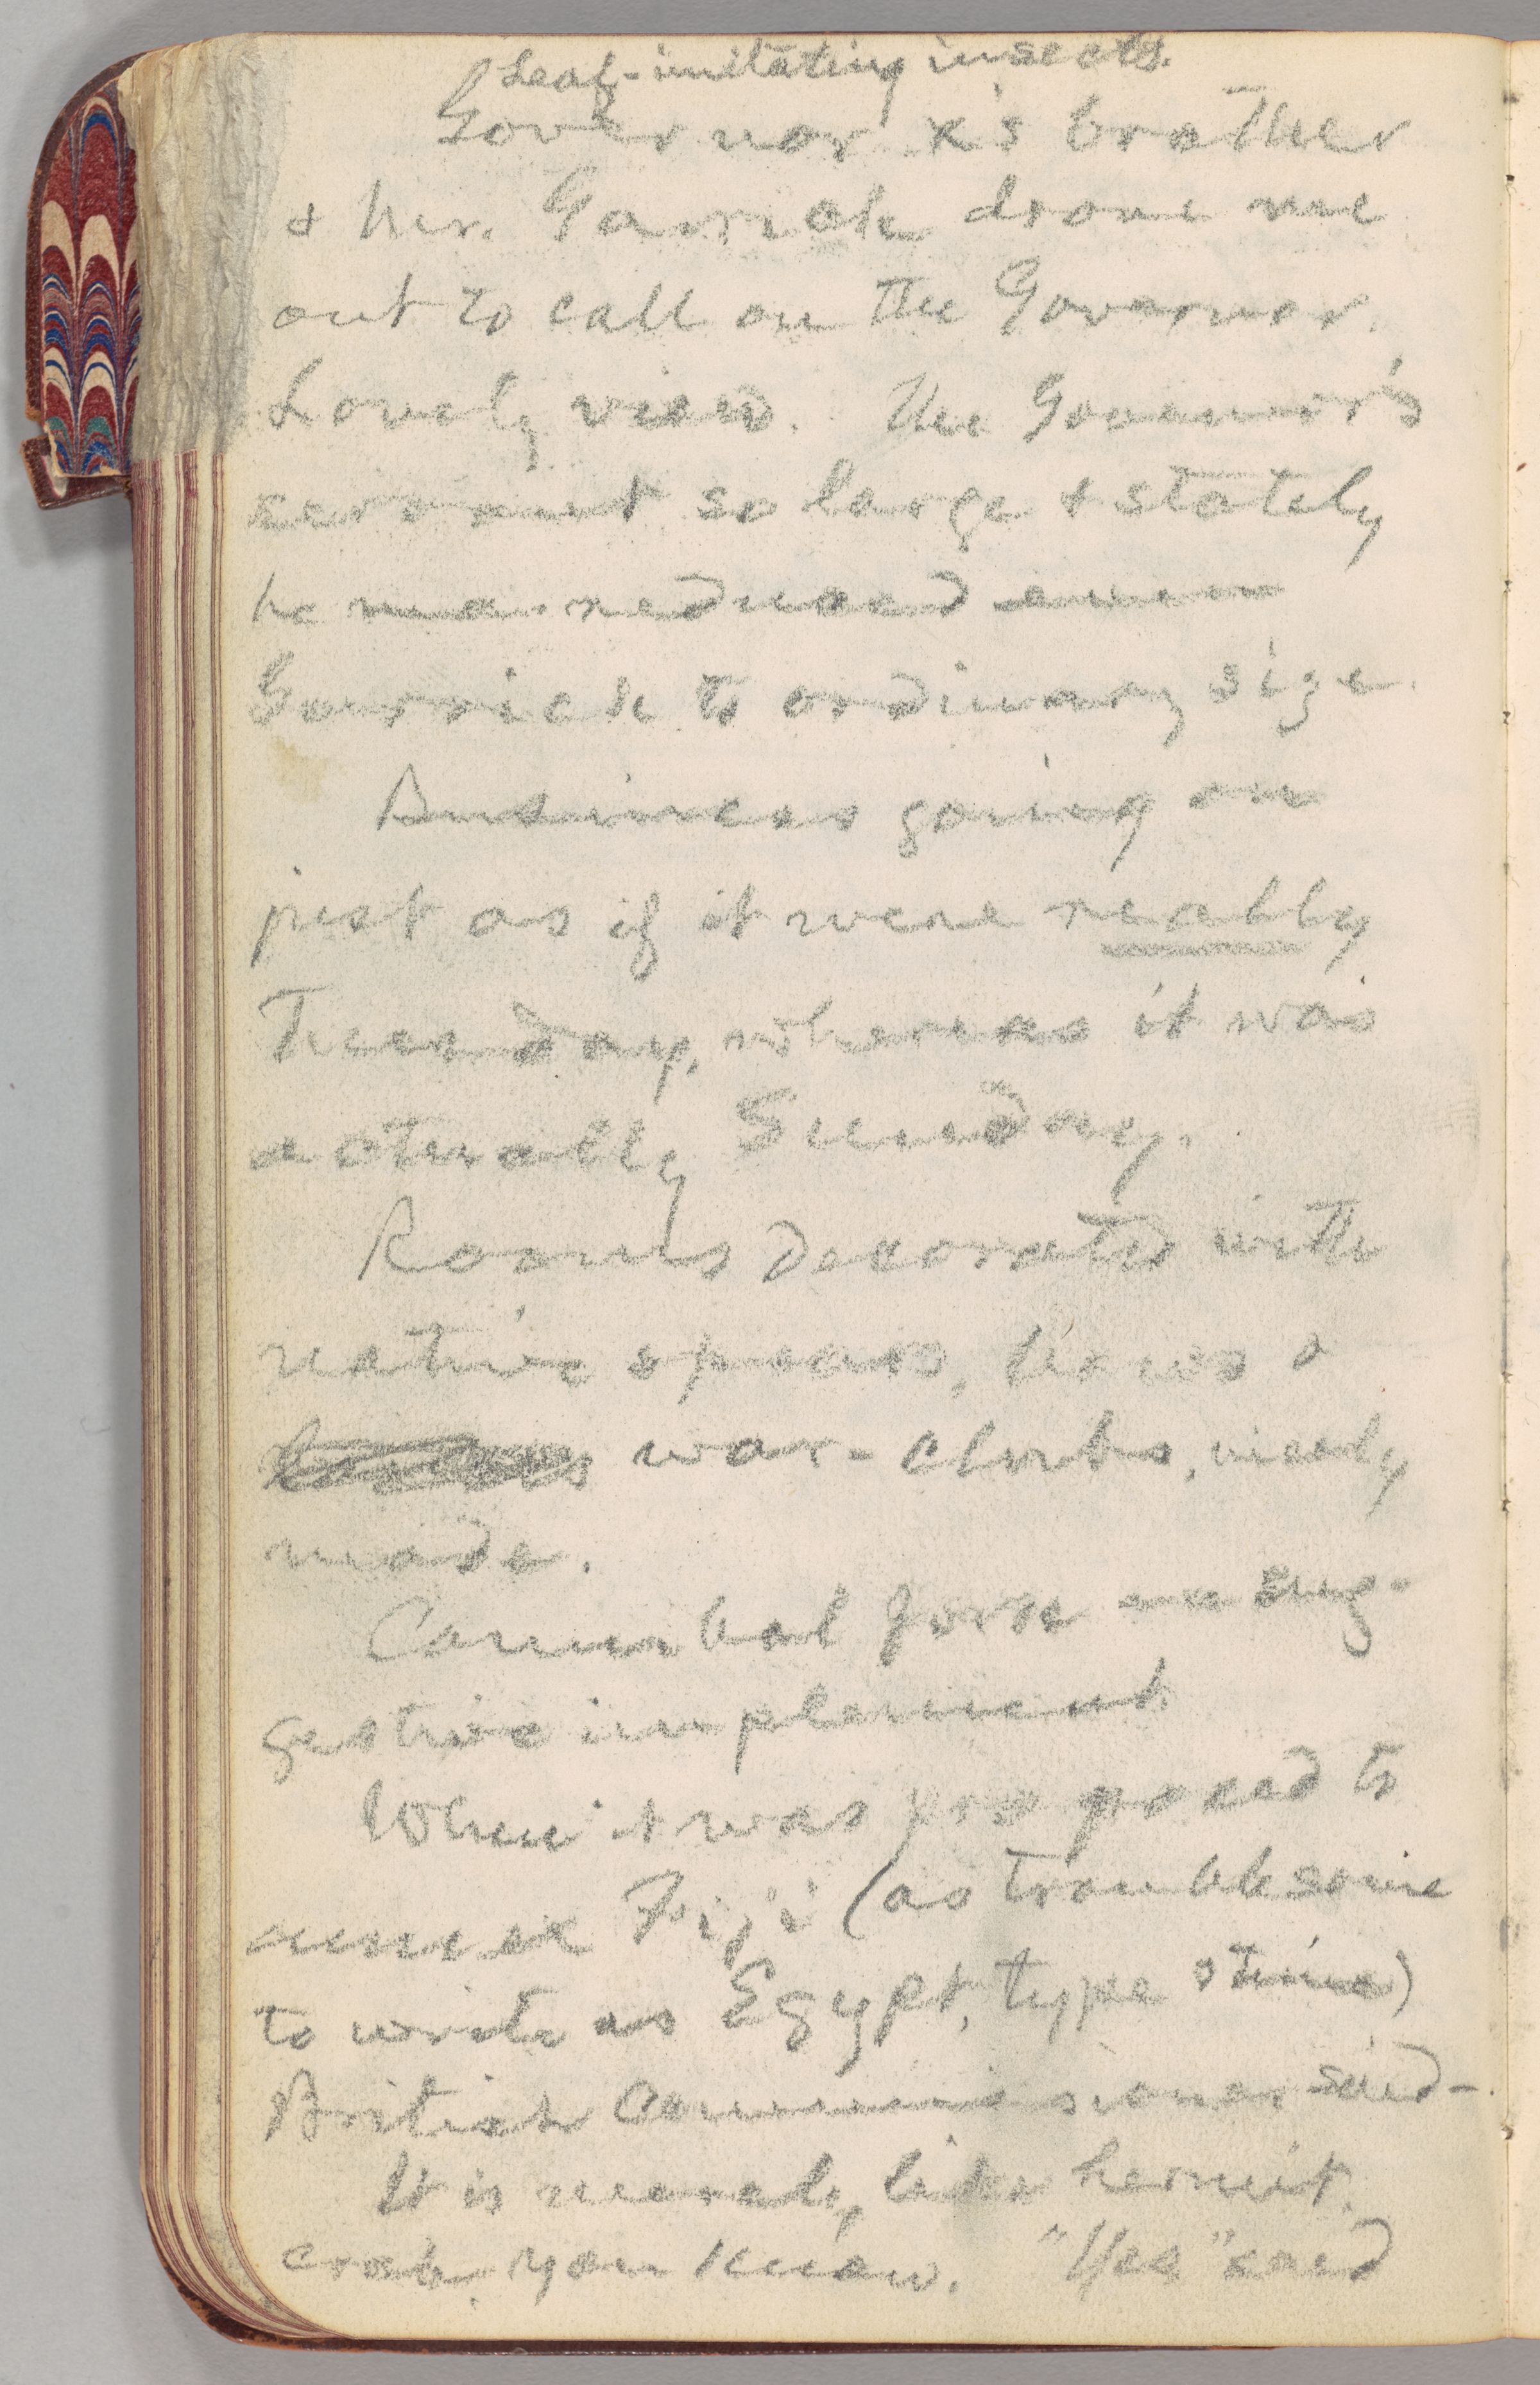 Leaf-imitating insects.
Governor X's brother
& Mr. Garrick drove me
out to call on the Governor.
Lovely view. The Governor's
servant so large & stately
he reduced even
Garrick to ordinary size.
Business going on
just as if it were really
Tuesday, whereas it was
actually Sunday.
Rooms decorated with
native spears, bows &
war-clubs, nicely
made.
Cannibal fork a sug-
gestive implement.
When it was proposed to
annex Fiji (as troublesome
to write as Egypt, type & time)
British Commissioner said—
It is merely like hermit
crab, you know. "Yes" said